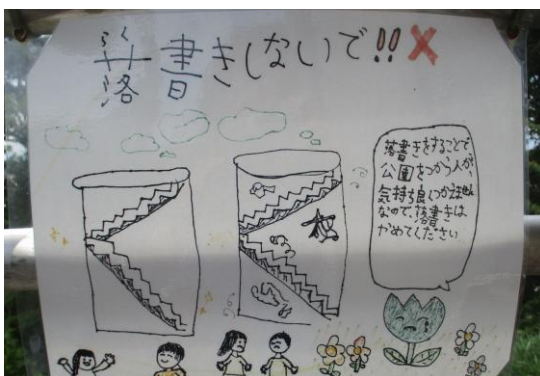 らく
落書きしないで!!
落書きをすることで
公園をつかう人が、
気持ち良くつかえません
なので、落書きは
やめてください